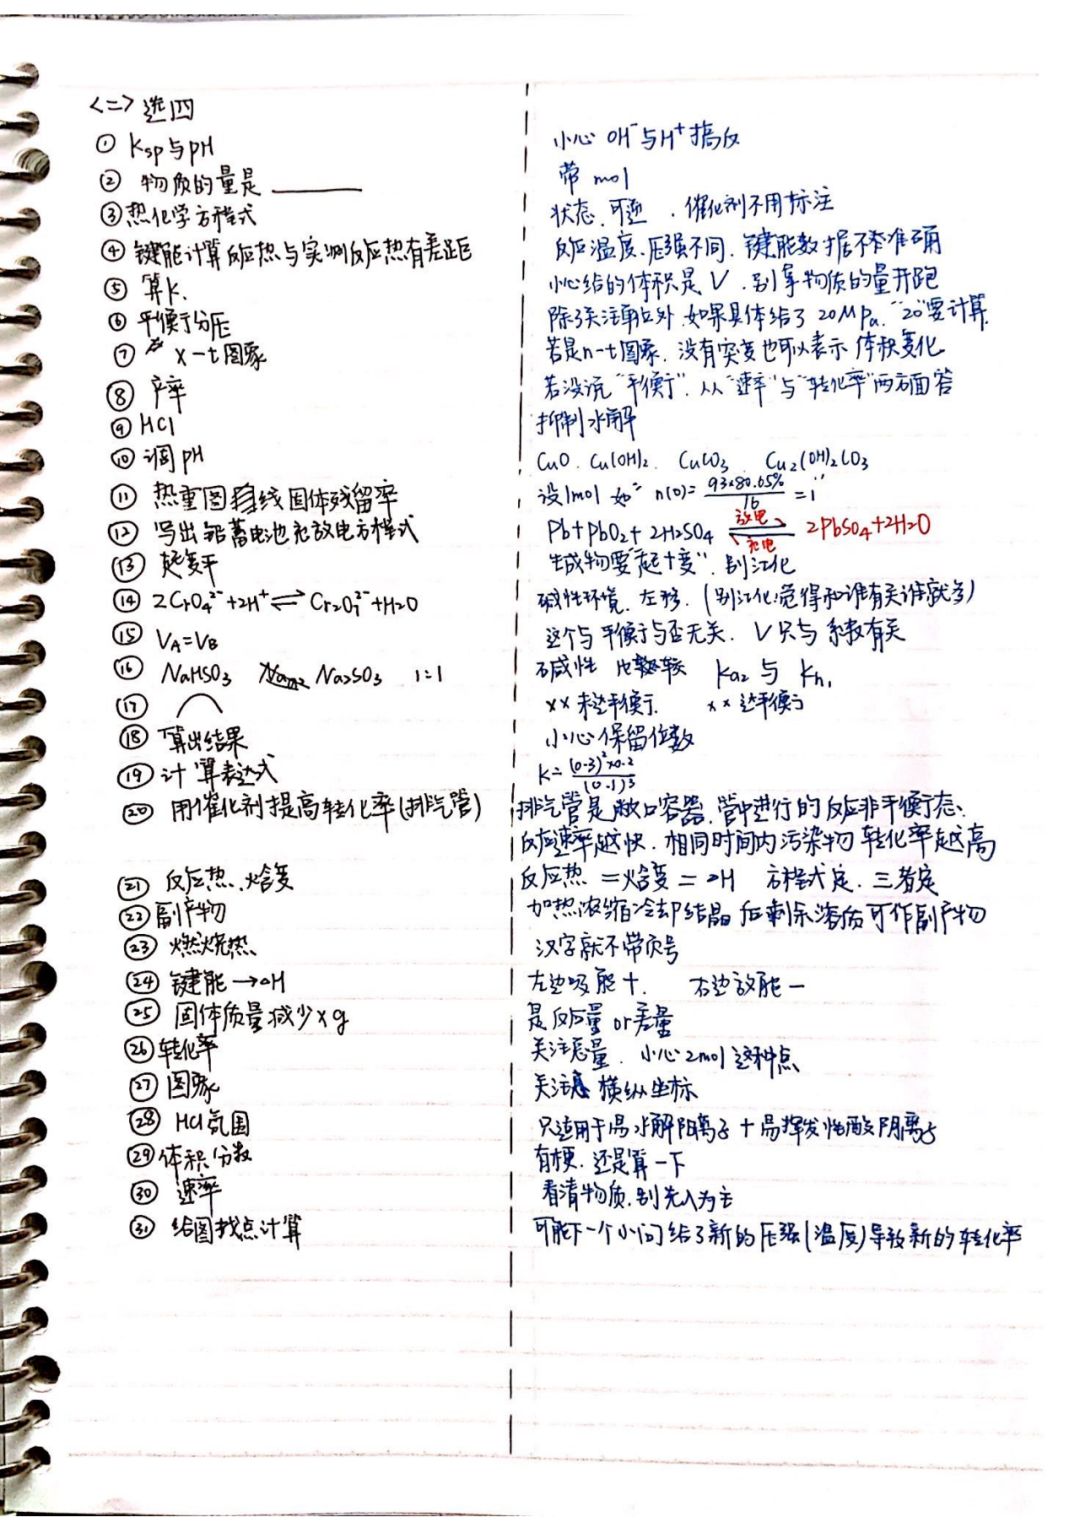 <二> 选四
① Ksp与pH 小心 OH⁻与H⁺搞反
② 物质的量是______ 带 mol
③ 热化学方程式 状态、可逆、催化剂不用标注
④ 键能计算反应热与实测反应热有差距 反应温度、压强不同、键能数据不准确
⑤ 算K. 小心给的体积是V、别拿物质的量开跑
⑥ 平衡分压 除了关注单位外、如果具体给了20MPa."20"要计算.
⑦ x-t图象 若是n-t图象、没有突变也可以表示体积变化
⑧ 产率 若没说"平衡"、从"速率"与"转化率"两方面答
⑨ HCl 抑制水解
⑩ 调pH CuO、Cu(OH)₂、CuCO₃、Cu₂(OH)₂CO₃
⑪ 热重图 曲线固体残留率 设1mol 如"n(O)=(93×80.65%)/16=1"
⑫ 写出铅蓄电池充放电方程式 Pb+PbO₂+2H₂SO₄ 放电 充电 2PbSO₄+2H₂O
⑬ 起变平 生成物要"起+变"、别忘化
⑭ 2CrO₄²⁻+2H⁺⇌Cr₂O₇²⁻+H₂O 碱性环境、左移.(别忘化觉得和谁有关谁就多)
⑮ VA=VB 这个与平衡与否无关、V只与系数有关
⑯ NaHSO₃ Na₂SO₃ 1:1 碱性 比较 Ka₂与Kh₁
⑰ ⌒ ××未达平衡. ××达平衡
⑱ 算出结果 小心保留位数
⑲ 计算表达式 K=(0.3)²×0.2/(0.1)³
⑳ 用催化剂提高转化率(排气管) 排气管是敞口容器、管中进行的反应非平衡态、
反应速率越快、相同时间内污染物转化率越高
㉑ 反应热、焓变 反应热=焓变=△H 方程式定、三者定
㉒ 副产物 加热浓缩冷却结晶后剩余溶质可作副产物
㉓ 燃烧热 汉字就不带负号
㉔ 键能→△H 左边吸能+. 右边放能-
㉕ 固体质量减少xg 是反应量or差量
㉖ 转化率 关注总量、小心2mol这种点
㉗ 图象 关注 横纵坐标
㉘ HCl氛围 只适用于易水解阳离子+易挥发性酸阴离子
㉙ 体积分数 有梗、还是算一下
㉚ 速率 看清物质、别先入为主
㉛ 给图找点计算 可能下一个小问给了新的压强(温度)导致新的转化率